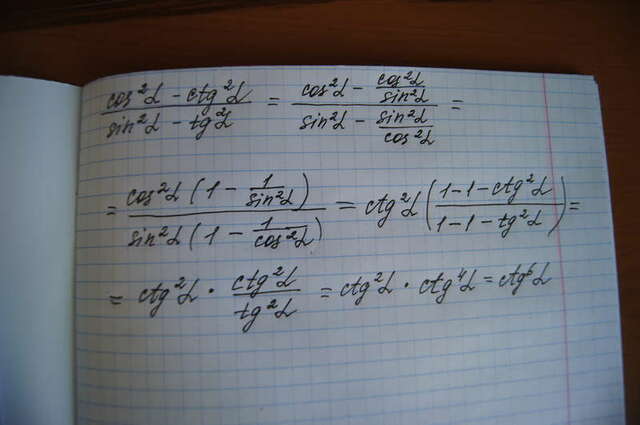 (cos²α - ctg²α)/(sin²α - tg²α) = (cos²α - cos²α/sin²α)/(sin²α - sin²α/cos²α) =
= (cos²α (1 - 1/sin²α))/(sin²α (1 - 1/cos²α)) = ctg²α ((1-1-ctg²α)/(1-1-tg²α)) =
= ctg²α · ctg²α/tg²α = ctg²α · ctg⁴α = ctg⁶α